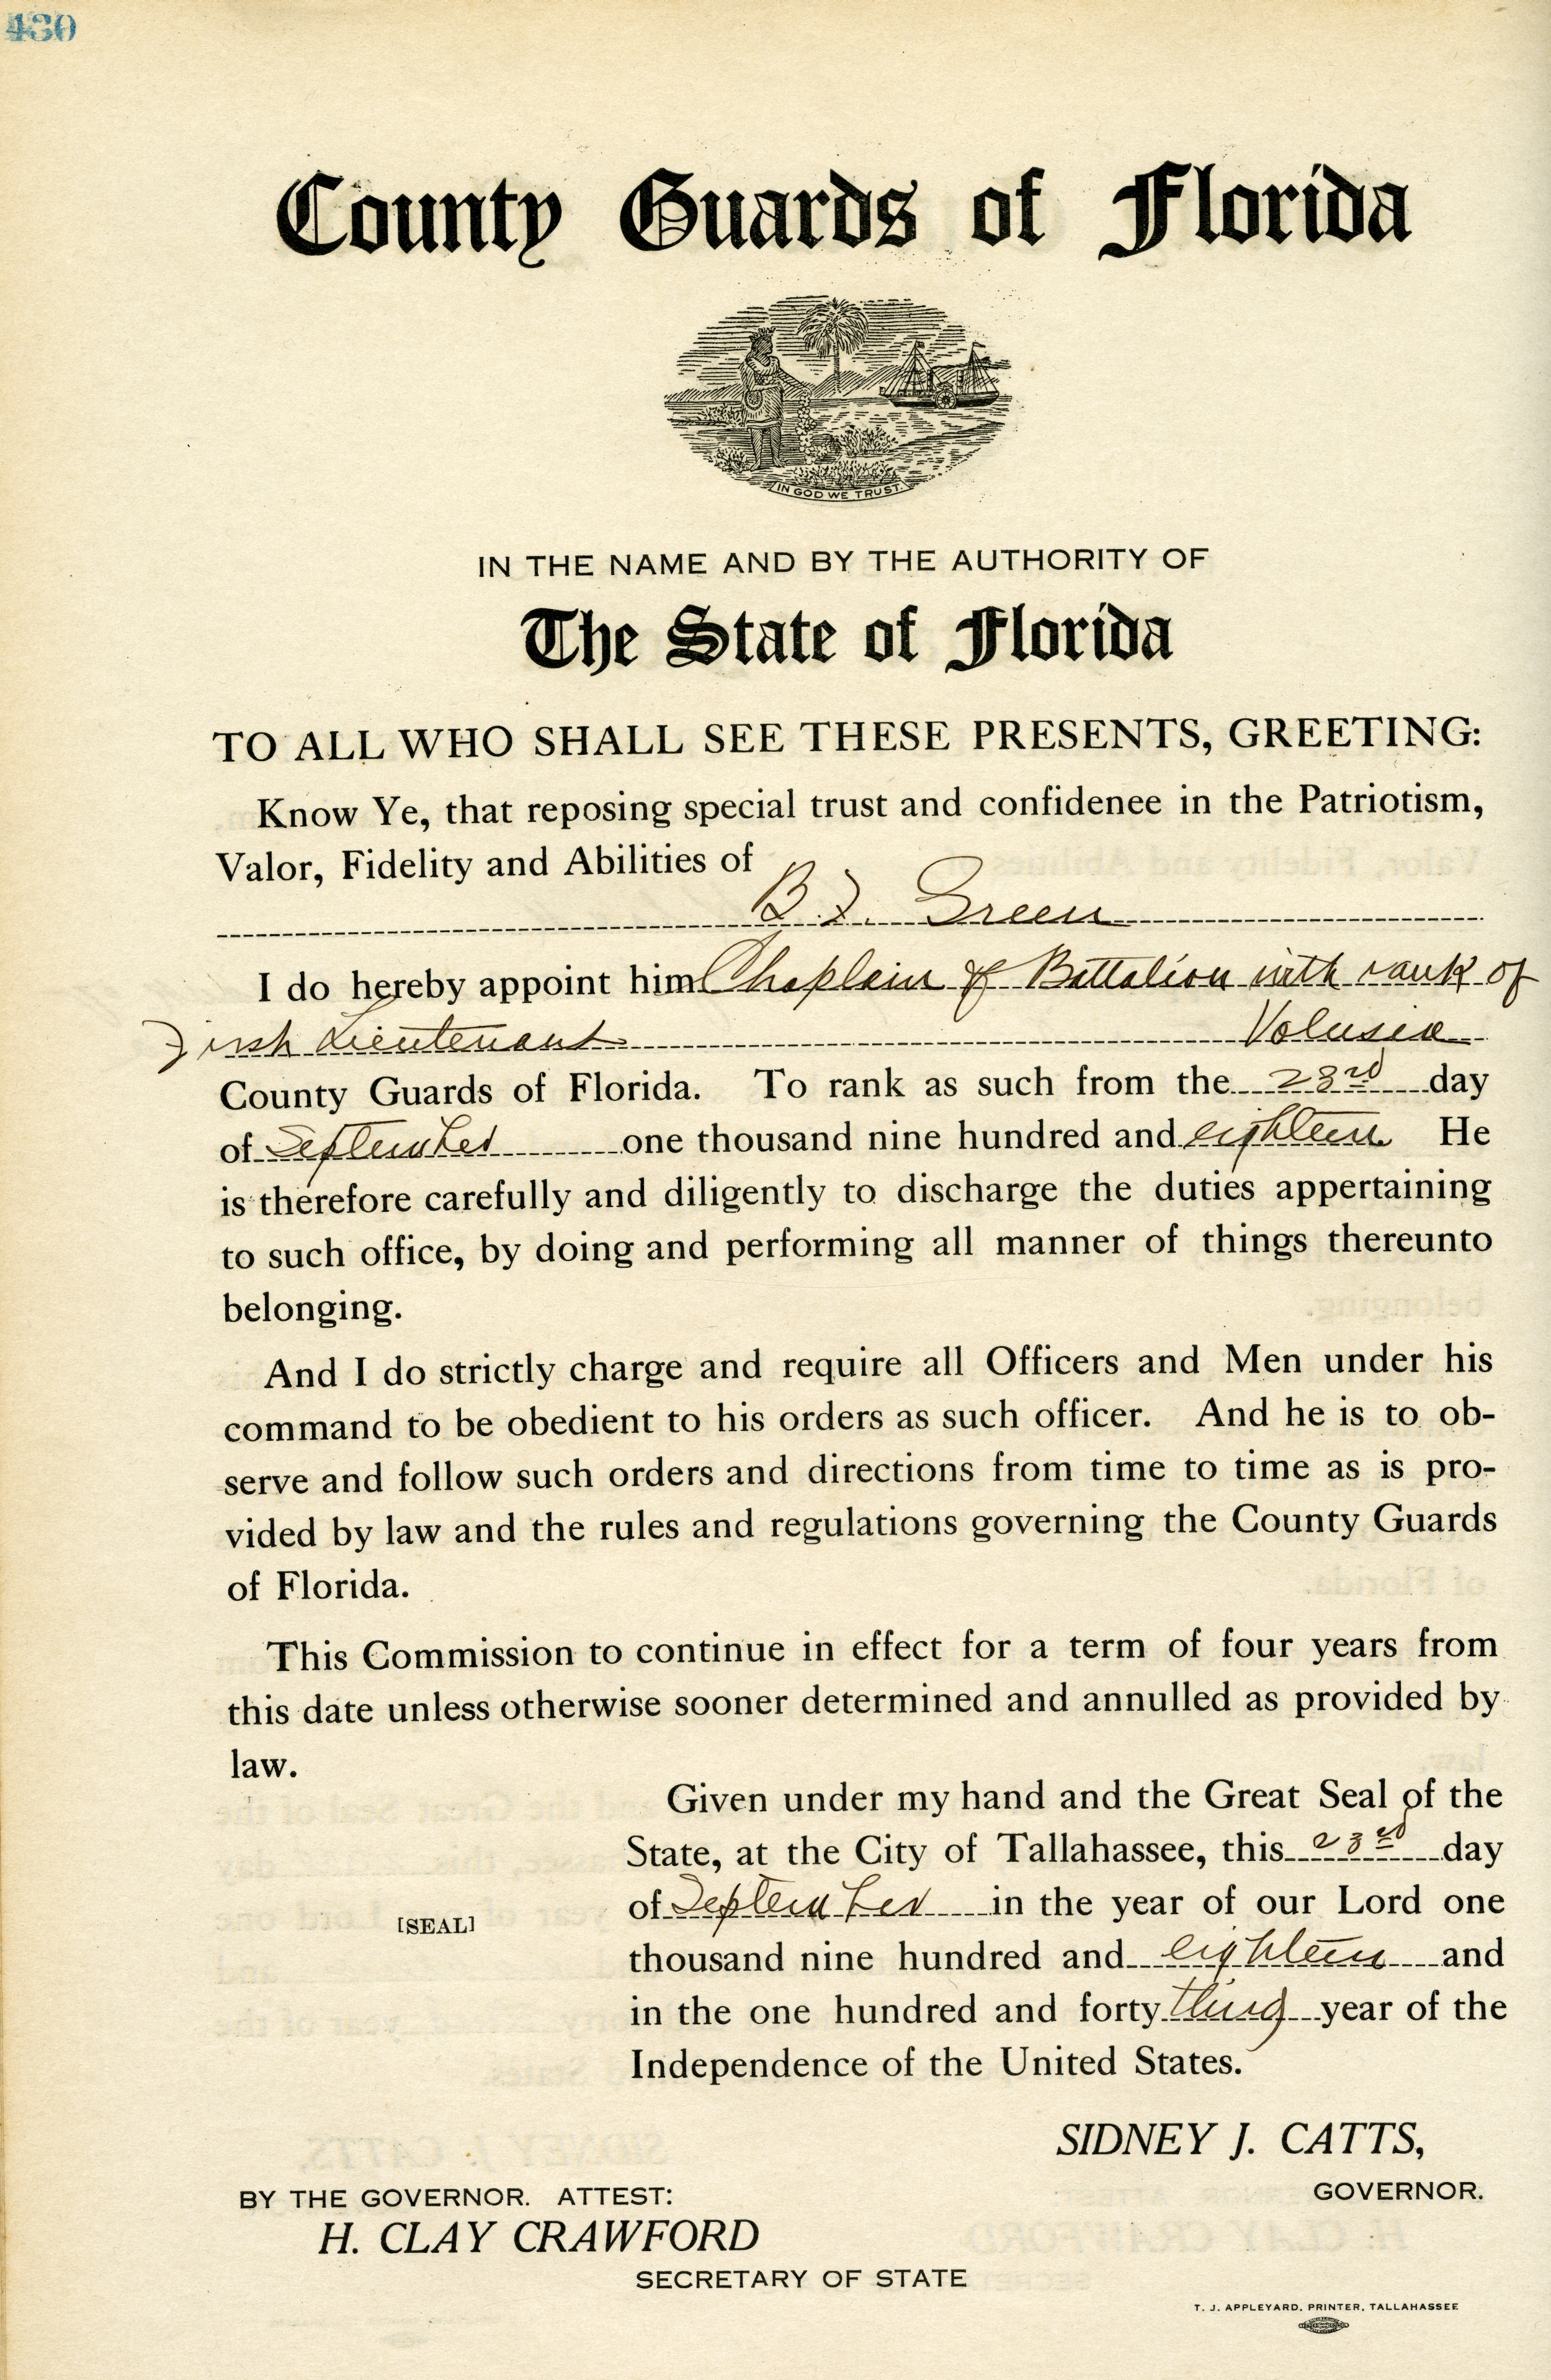 430
County Guards of Florida
IN GOD WE TRUST.
IN THE NAME AND BY THE AUTHORITY OF
The State of Florida
TO ALL WHO SHALL SEE THESE PRESENTS, GREETING:
Know Ye, that reposing special trust and confidenee in the Patriotism,
Valor, Fidelity and Abilities of
B. F. Green
I do hereby appoint him Chaplain of Battalion with rank of
First Lieutenant Volusia
County Guards of Florida. To rank as such from the 23rd day
of September one thousand nine hundred and eighteen He
is therefore carefully and diligently to discharge the duties appertaining
to such office, by doing and performing all manner of things thereunto
belonging.
And I do strictly charge and require all Officers and Men under his
command to be obedient to his orders as such officer. And he is to ob-
serve and follow such orders and directions from time to time as is pro-
vided by law and the rules and regulations governing the County Guards
of Florida.
This Commission to continue in effect for a term of four years from
this date unless otherwise sooner determined and annulled as provided by
law.
Given under my hand and the Great Seal of the
State, at the City of Tallahassee, this 23rd day
of September in the year of our Lord one
[SEAL]
thousand nine hundred and eighteen and
in the one hundred and forty third year of the
Independence of the United States.
SIDNEY J. CATTS,
GOVERNOR.
BY THE GOVERNOR. ATTEST:
H. CLAY CRAWFORD
SECRETARY OF STATE
T. J. APPLEYARD, PRINTER, TALLAHASSEE